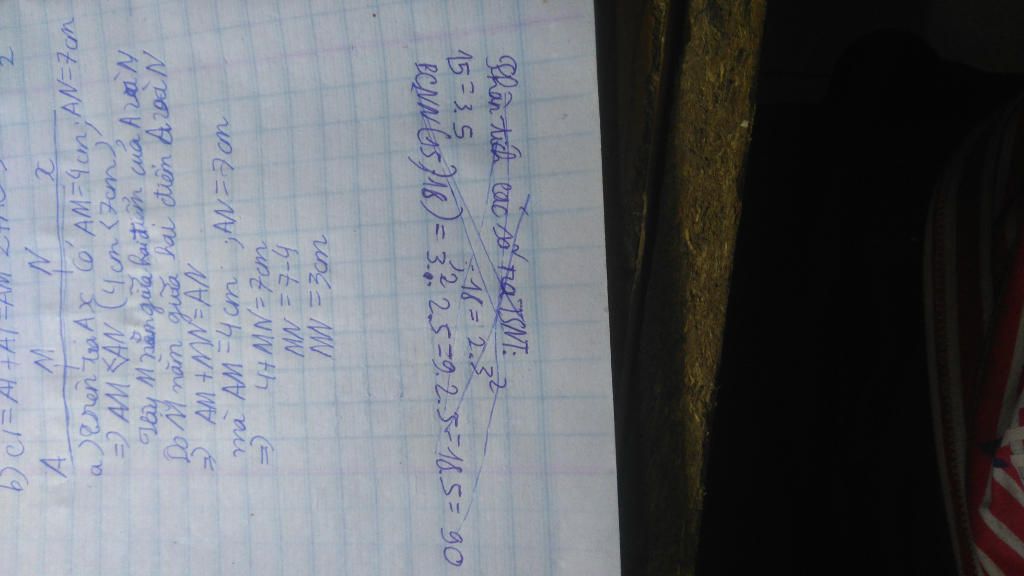 b) CI = AI + AI = AM
2
A M N x
a) Trên tia Ax có AM = 4cm, AN = 7cm
=> AM < AN (4cm < 7cm)
Do M nằm giữa hai điểm A và N
=> AM + MN = AN
mà AM = 4cm, AN = 7cm
=> 4 + MN = 7cm
MN = 7 - 4
MN = 3cm
Phân tích các số ra TSNT:
15 = 3.5
18 = 2.3²
BCNN(15,18) = 3².2.5 = 9.2.5 = 18.5 = 90